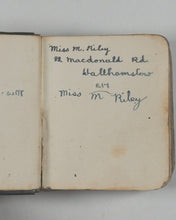 Miss M. Riley
Macdonald Rd
Walthamstow
E17
Miss M Riley